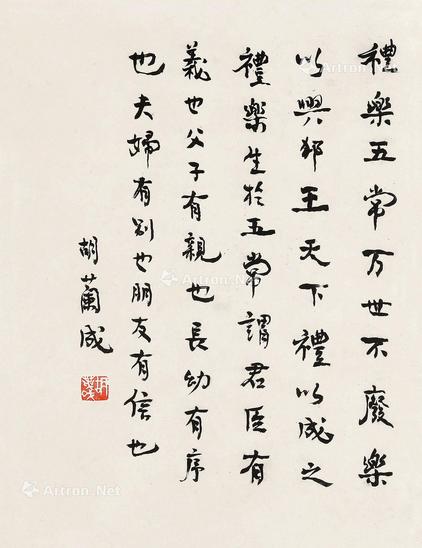 禮樂五常万世不廢樂
以興邦王天下禮以成之
禮樂生於五常謂君臣有
義也父子有親也長幼有序
也夫婦有別也朋友有信也
胡蘭成
Artron.Net
Artron.Net
Artron.Net
Artron.Net